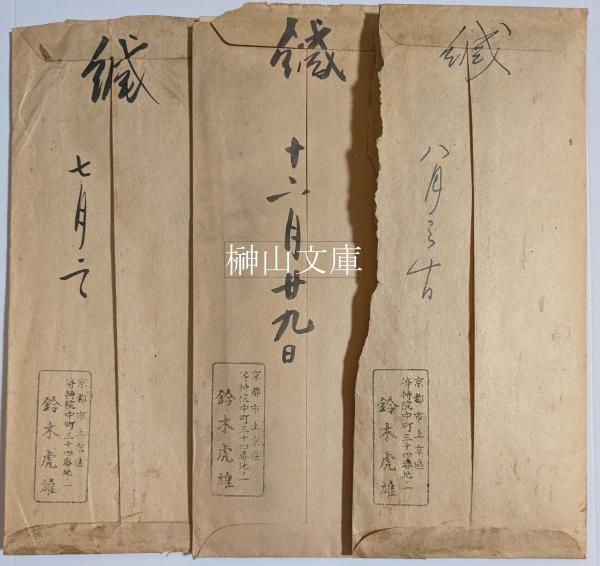 緘
七月一
京都市上京區
等持院中町三十四番地ノ一
鈴木虎雄
緘
十二月廿九日
京都市上京區
等持院中町三十四番地ノ一
鈴木虎雄
緘
八月三十日
京都市上京區
等持院中町三十四番地ノ一
鈴木虎雄
榊山文庫